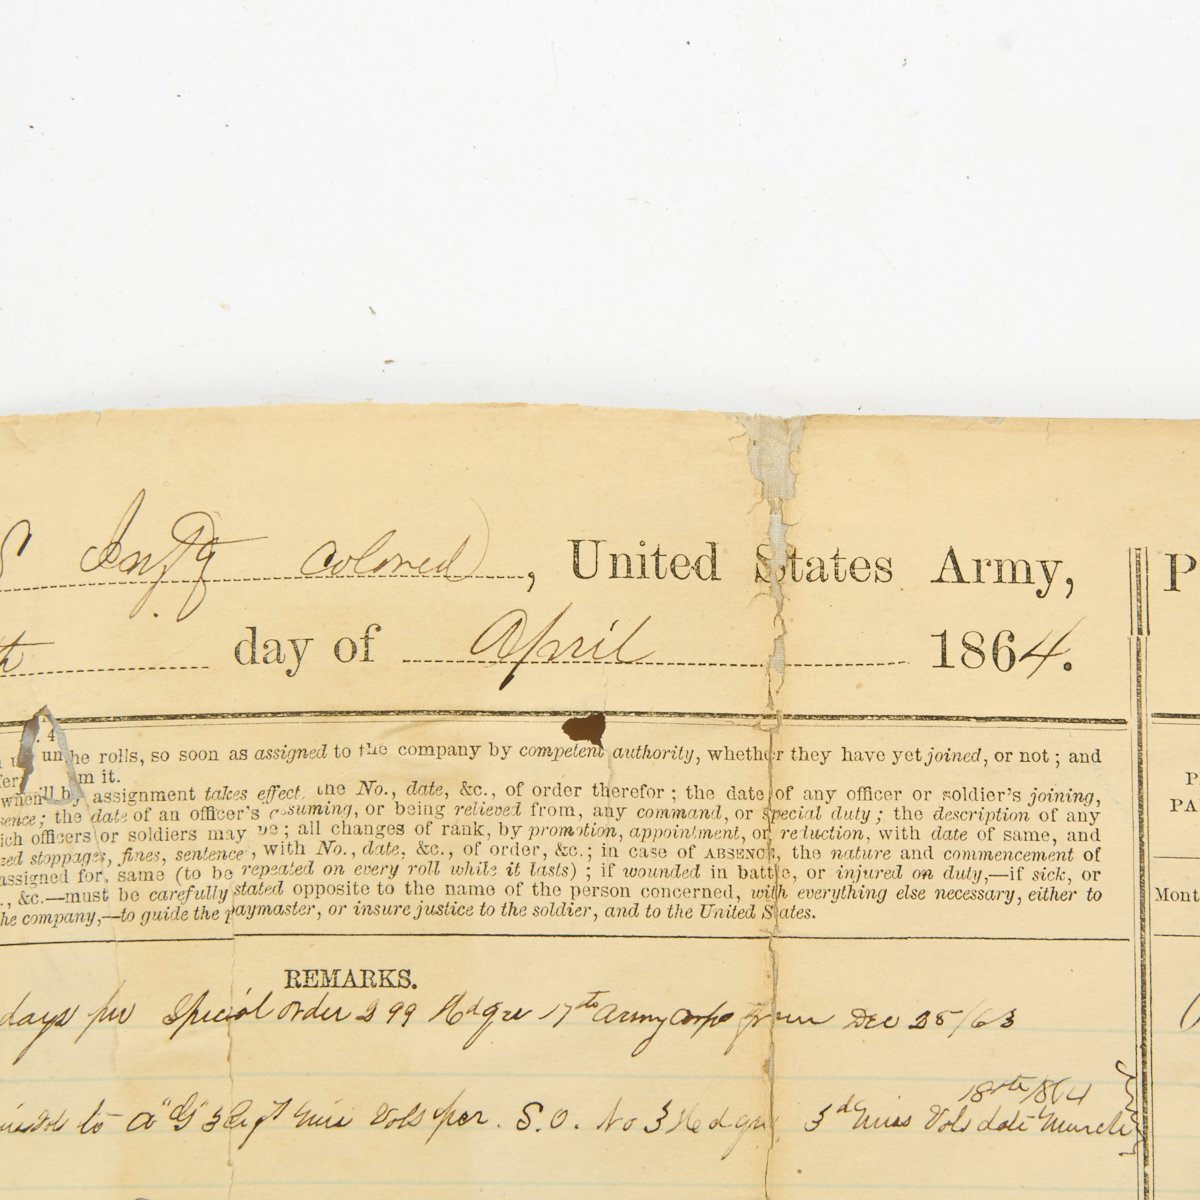 Infty Colored, United States Army,
th day of April 1864.
the rolls, so soon as assigned to the company by competent authority, whether they have yet joined, or not; and
m it.
when by assignment takes effect, the No., date, &c., of order therefor; the date of any officer or soldier's joining,
sence; the date of an officer's assuming, or being relieved from, any command, or special duty; the description of any
ich officers or soldiers may be; all changes of rank, by promotion, appointment, or reduction, with date of same, and
zed stoppages, fines, sentence, with No., date, &c., of order, &c.; in case of ABSENCE, the nature and commencement of
assigned for same (to be repeated on every roll while it lasts); if wounded in battle, or injured on duty,—if sick, or
., &c.—must be carefully stated opposite to the name of the person concerned, with everything else necessary, either to
he company,—to guide the paymaster, or insure justice to the soldier, and to the United States.
REMARKS.
days per Special Order 299 Hdqrs 17th Army Corps from Dec 25/63
18th/864
to Regt Miss Vols per S.O. No 3 Hdqrs 3d Miss Vols date March
P
P
PA
Mont